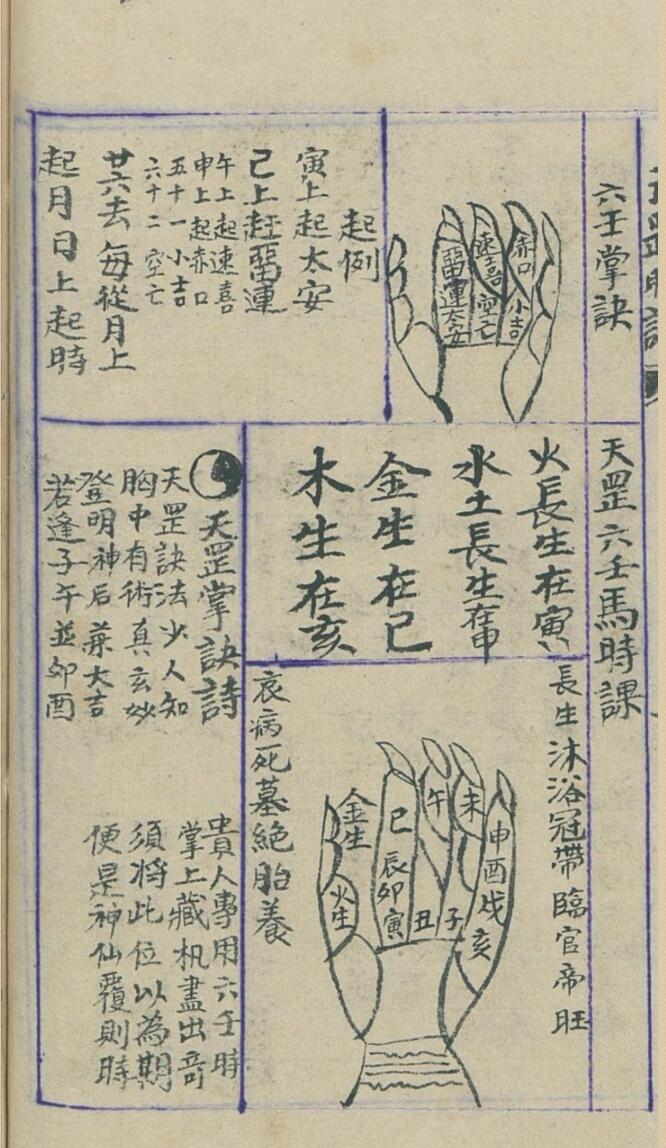 六壬掌訣
赤口
小吉
速喜
空亡
畱運
太安
起例
寅上起太安
己上赶畱運
午上起速喜
申上起赤口
五十一小吉
六十二空亡
廿六去每從月上
起月日上起時
天罡六壬馬時課
火長生在寅
水土長生在申
金生在巳
木生在亥
長生沐浴冠帶臨官帝旺
未
午
巳
申酉戌亥
辰卯寅
丑
子
金生
火生
衰病死墓絶胎養
天罡掌訣詩
天罡訣法少人知
貴人專用六壬時
胸中有術真玄妙
掌上藏机盡出竒
登明神后兼大吉
須將此位以為期
若逢子午並卯酉
便是神仙覆則時